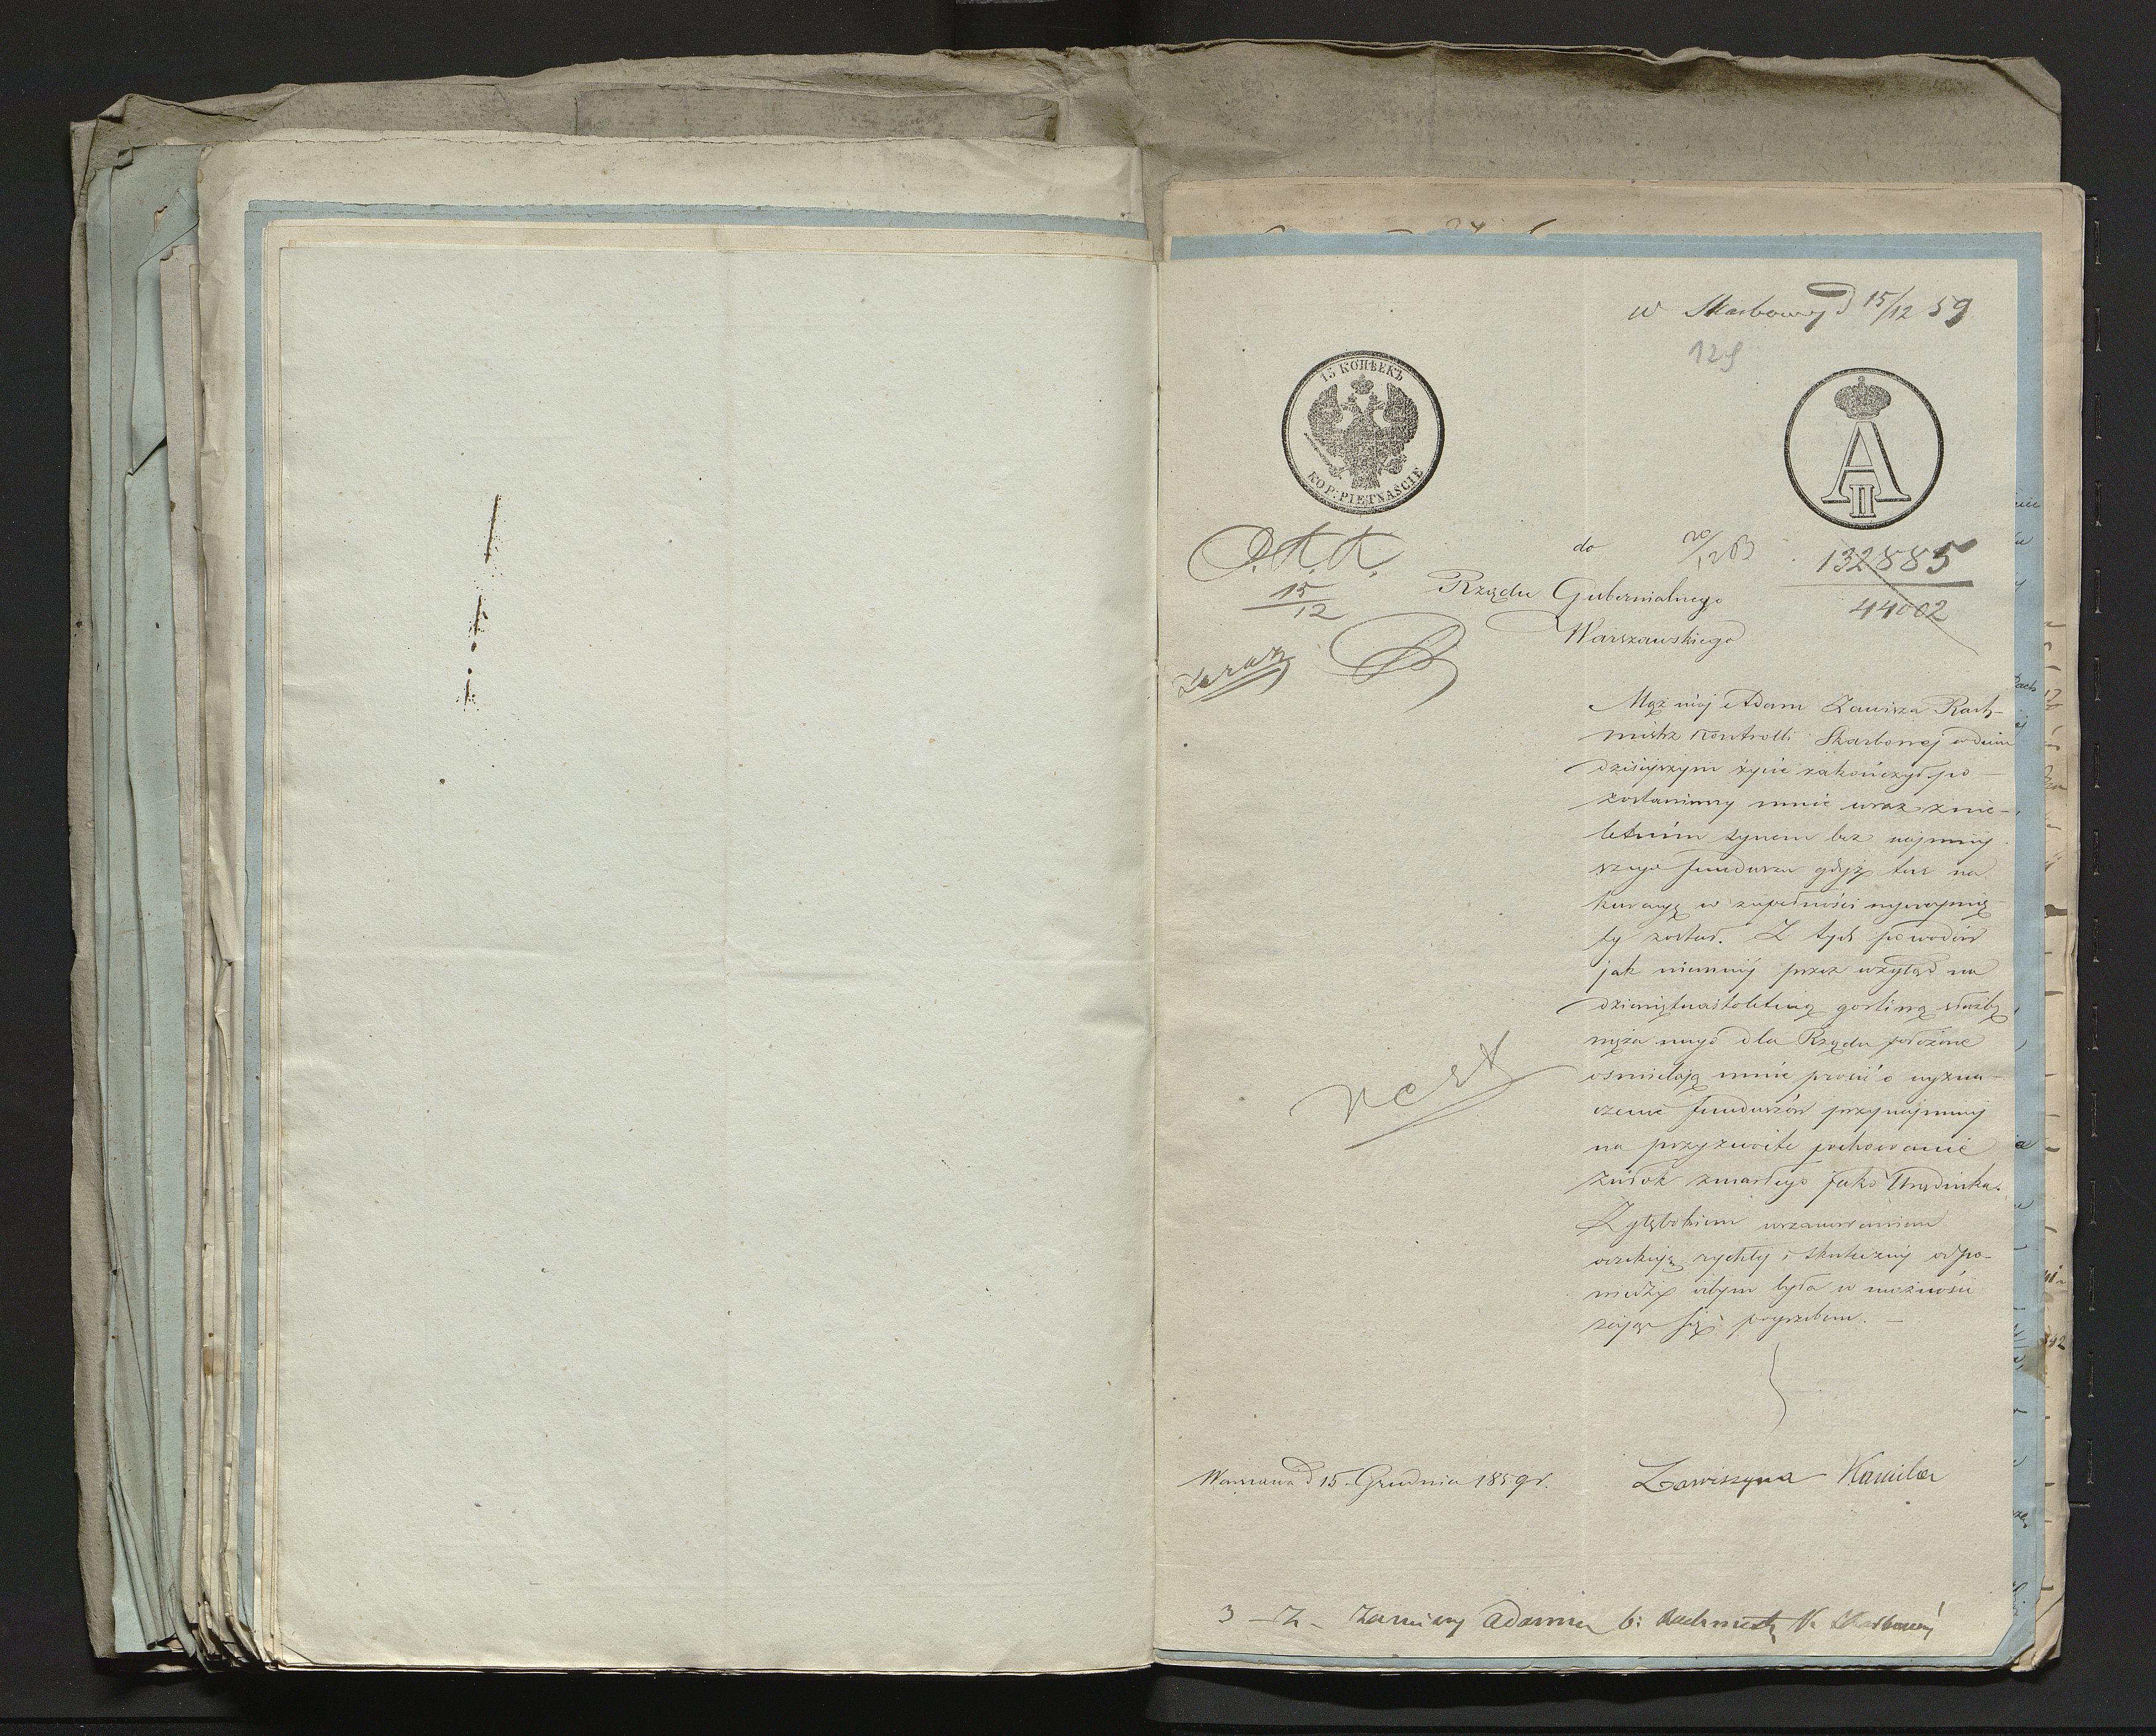 w Skarbowy d 15/12 59
129
15 КОПѢЕКЪ
KOP: PIĘTNAŚCIE
A II
15/12
do
20/12
132885
44002
Rządu Gubernialnego
Warszawskiego
zaraz
Mąż mój Adam Zawisza Rach-
mistrz Kontrolli Skarbowej w dniu
dzisiejszym życie zakończył po-
zostawiwszy mnie wraz z nie-
letnim synem bez najmniej
szego funduszu gdyż ten na
kuracyę w zupełności wyczerpnię-
ty został. Z tych powodów
jak niemniej przez wzgląd na
dziewiętnastoletnią gorliwą służbę
męża mego dla Rządu położone
ośmielają mnie prosić o wyzna-
czenie funduszów przynajmniej
na przyzwoite pochowanie
zwłok zmarłego jako Urzędnika.
Z głębokiem uszanowaniem
oczekuję rychłej i skutecznej odpo-
wiedzi abym była w możności
zająć się pogrzebem. —
Warszawa d 15 Grudnia 1859 r.
Zawiszyna Kamila
3 – Z – Zawiszy Adama b: Rachmistrz K. Skarbowej